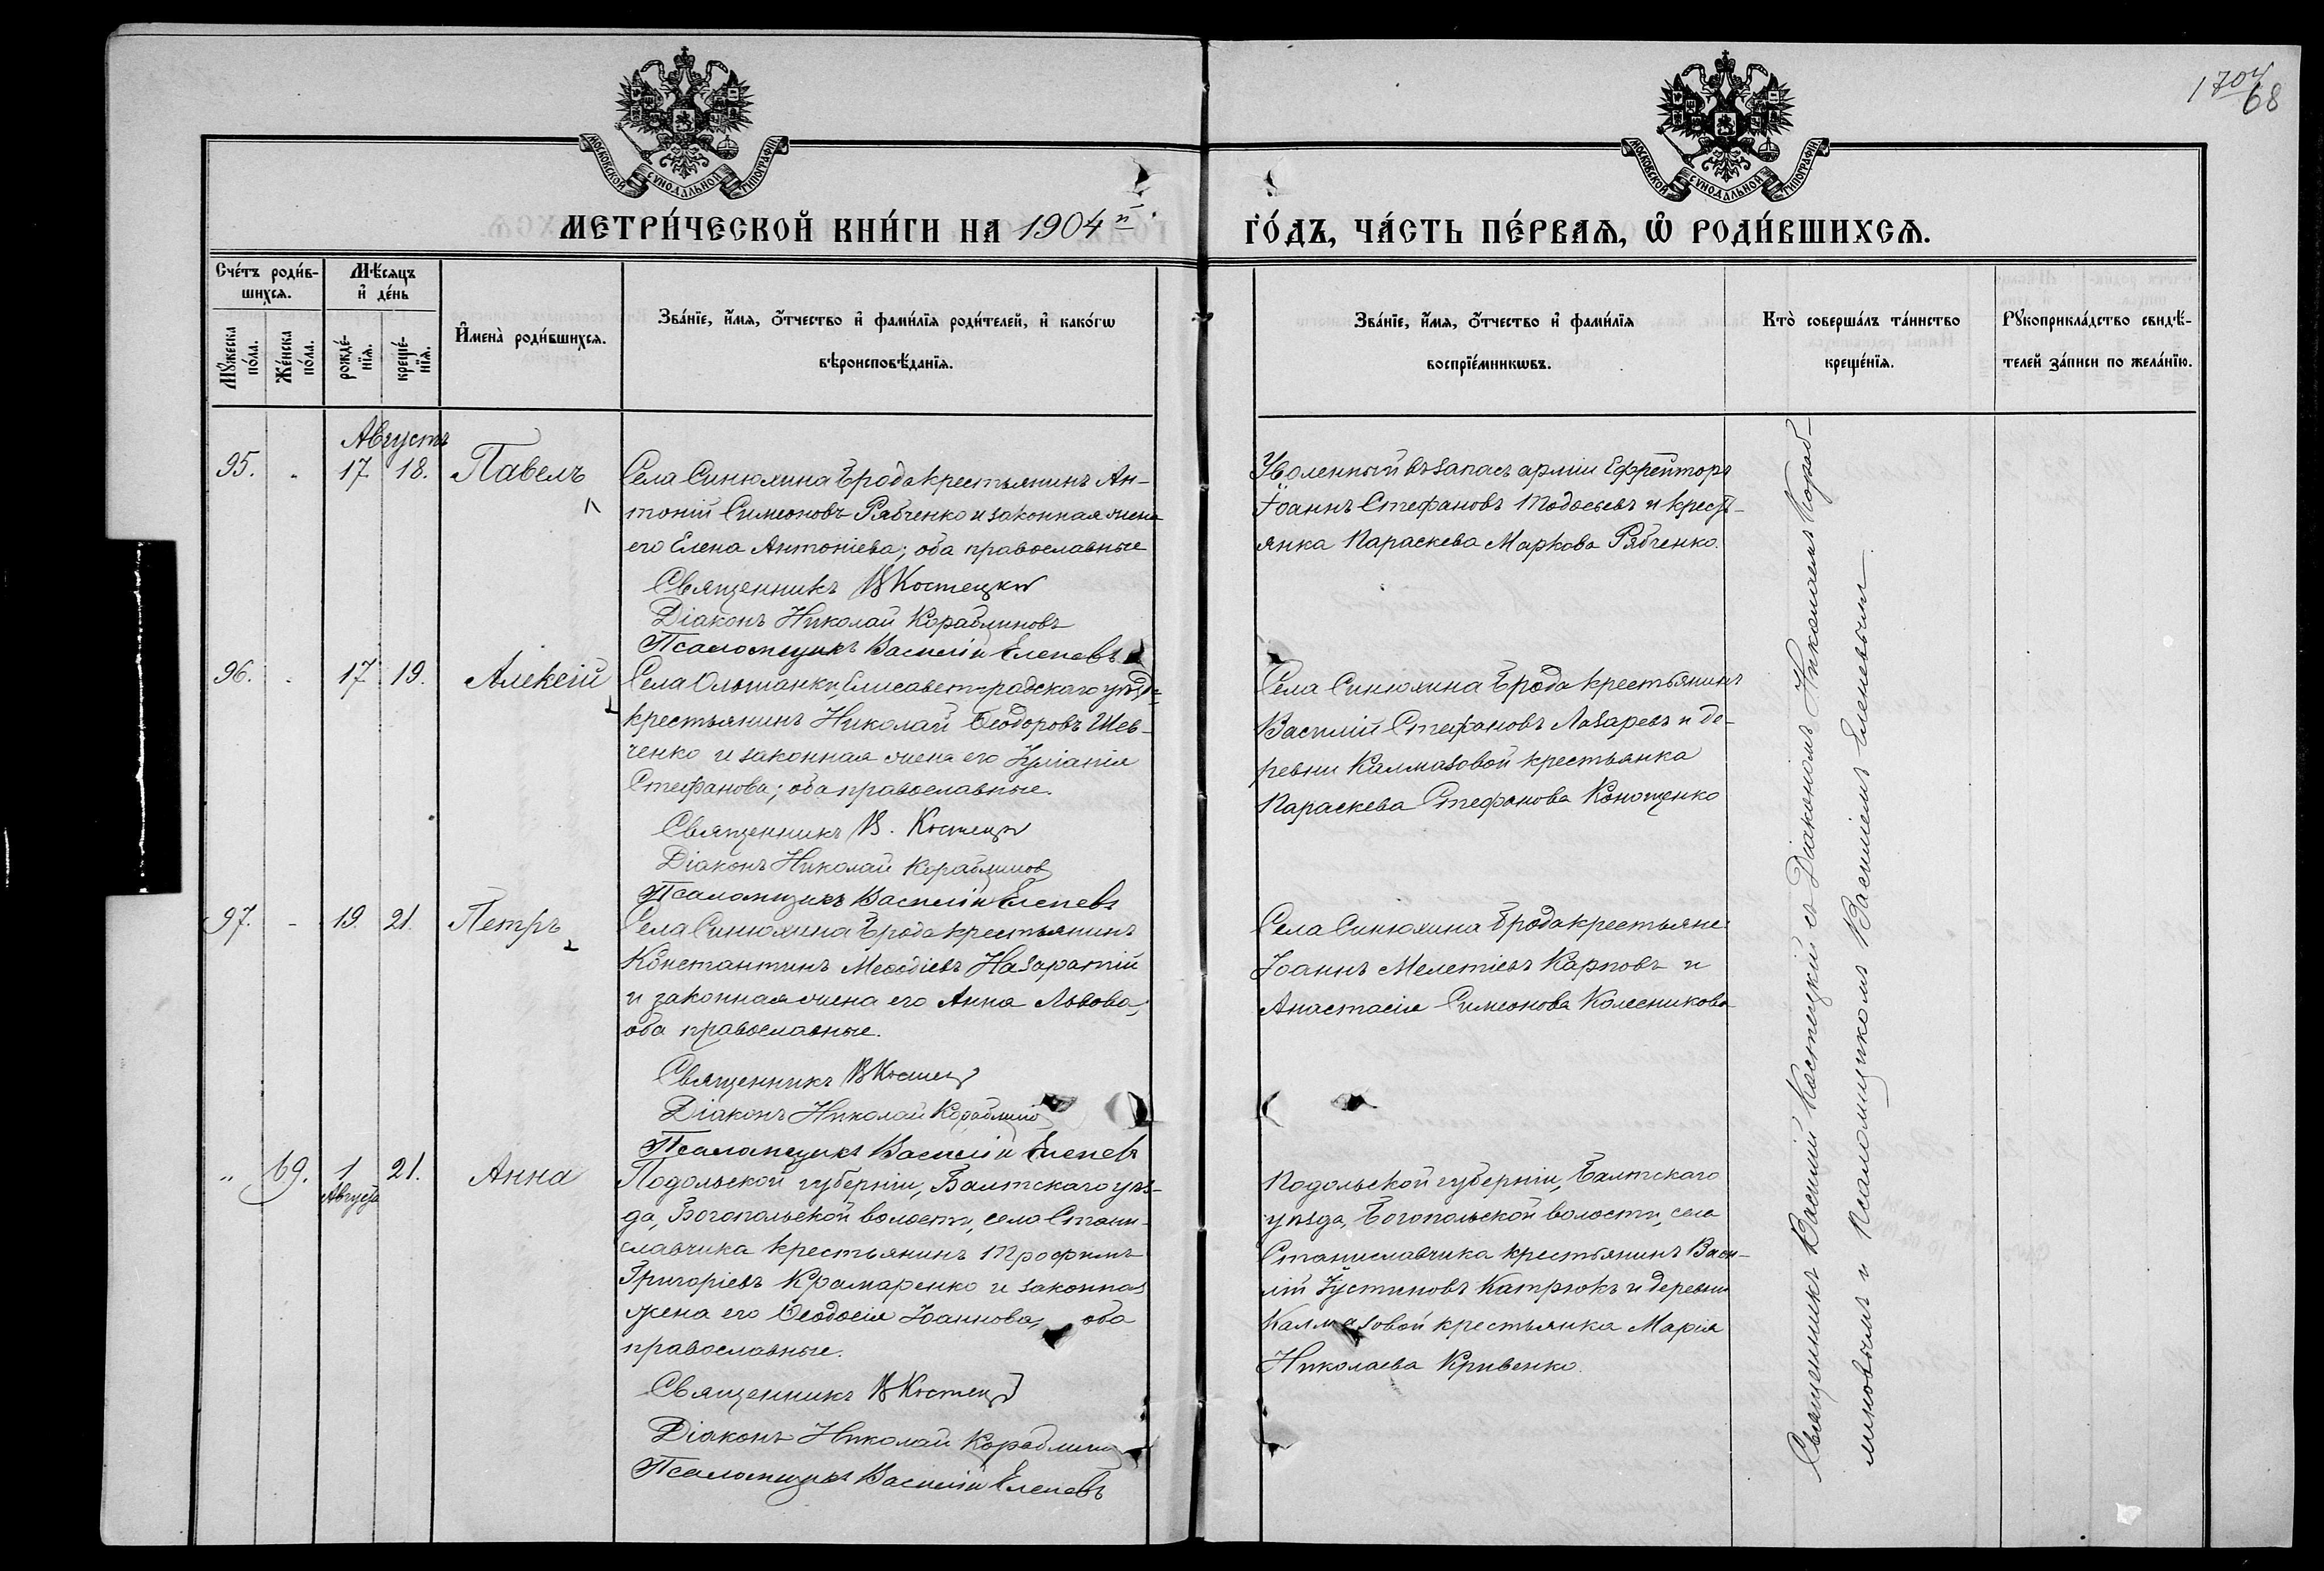 1704
68
МОСКОВСКОЙ СУНОДАЛЬНОЙ ТИПОГРАФІИ
МОСКОВСКОЙ СУНОДАЛЬНОЙ ТИПОГРАФІИ
МЕТРИ́ЧЕСКОЙ КНИ́ГИ НА 1904й
ГО́ДЪ, ЧА́СТЬ ПЕ́РВАѦ, Ѡ РОДИ́ВШИХСѦ.
Сче́тъ роди́в-
шихсѧ.
Мꙋжеска по́ла.
Же́нска по́ла.
Мѣ́сѧцъ
и҆ де́нь
рожде́-
нїѧ.
креще́-
нїѧ.
И҆мена̀ роди́вшихсѧ.
Зва́нїе, и҆́мѧ, ѻ҆́тчество и҆ фами́лїѧ роди́телей, и҆ како́гѡ
вѣроисповѣ́данїѧ.
Зва́нїе, и҆́мѧ, ѻ҆́тчество и҆ фами́лїѧ
воспрїе́мникѡвъ.
Кто̀ соверша́лъ та́инство
креще́нїѧ.
Рꙋкоприкла́дство свидѣ́-
телей за́писи по жела́нїю.
Августъ
95. „ 17. 18. Павелъ
Села Синюхина Брода крестьянинъ Ан-
тоній Симеоновъ Рябченко и законная жена
его Елена Антоніева; оба православные
Священникъ В Костецкій
Діаконъ Николай Кораблиновъ
Псаломщикъ Василій Еленевъ
Уволенный въ запасъ арміи Ефрейторъ
Іоаннъ Стефановъ Тодосьевъ и кресть-
янка Параскева Маркова Рябченко.
96. 17 19. Алексій
Села Ольшанки, Елисаветградскаго уѣзда,
крестьянинъ Николай Ѳеодоровъ Шев-
ченко и законная жена его Іуліанія
Стефанова; оба православные.
Священникъ В. Костецкій
Діаконъ Николай Кораблинов
Псаломщикъ Василій Еленевъ
Села Синюхина Брода крестьянинъ
Василій Стефановъ Лазаревъ и де-
ревни Калмазовой крестьянка
Параскева Стефанова Конощенко
97. - 19. 21. Петръ
Села Синюхина Брода крестьянинъ
Константинъ Меѳодіевъ Назаратій
и законная жена его Анна Львова;
оба православные.
Священникъ В Костец
Діаконъ Николай Кораблино
Псаломщикъ Василій Еленевъ
Села Синюхина Брода крестьяне
Іоаннъ Мелетіевъ Карповъ и
Анастасія Симеонова Колесникова
„ 69. 1 21. Анна
Августа
Подольской губерніи, Балтскаго уѣз-
да, Богопольской волости, села Стани-
славчика крестьянинъ Трофимъ
Григоріевъ Крамаренко и законная
жена его Ѳеодосія Іоаннова, оба
православные.
Священникъ В Костец
Діаконъ Николай Кораблино
Псаломщикъ Василій Еленевъ
Подольской губерніи, Балтскаго
уѣзда, Богопольской волости, села
Станиславчика крестьянинъ Васи-
лій Іустиновъ Катрюкъ и деревни
Калмазовой крестьянка Марія
Николаева Кривенко.
Священникъ Василій Костецкій съ Діакономъ Николаемъ Кораб-
линовымъ и Псаломщикомъ Василіемъ Еленевымъ